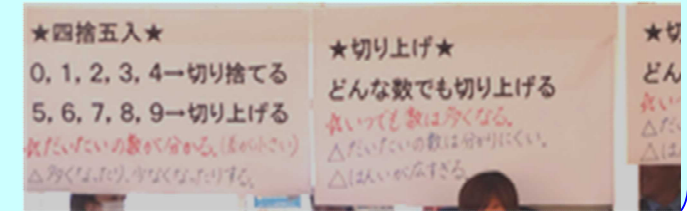 ★四捨五入★
0, 1, 2, 3, 4→切り捨てる
5, 6, 7, 8, 9→切り上げる
☆だいたいの数が分かる。(差が小さい)
△多くなったり、少なくなったりする。
★切り上げ★
どんな数でも切り上げる
☆いつでも数は多くなる。
△だいたいの数は分かりにくい。
△はんいが広すぎる。
★切
どん
☆い
△だい
△はん